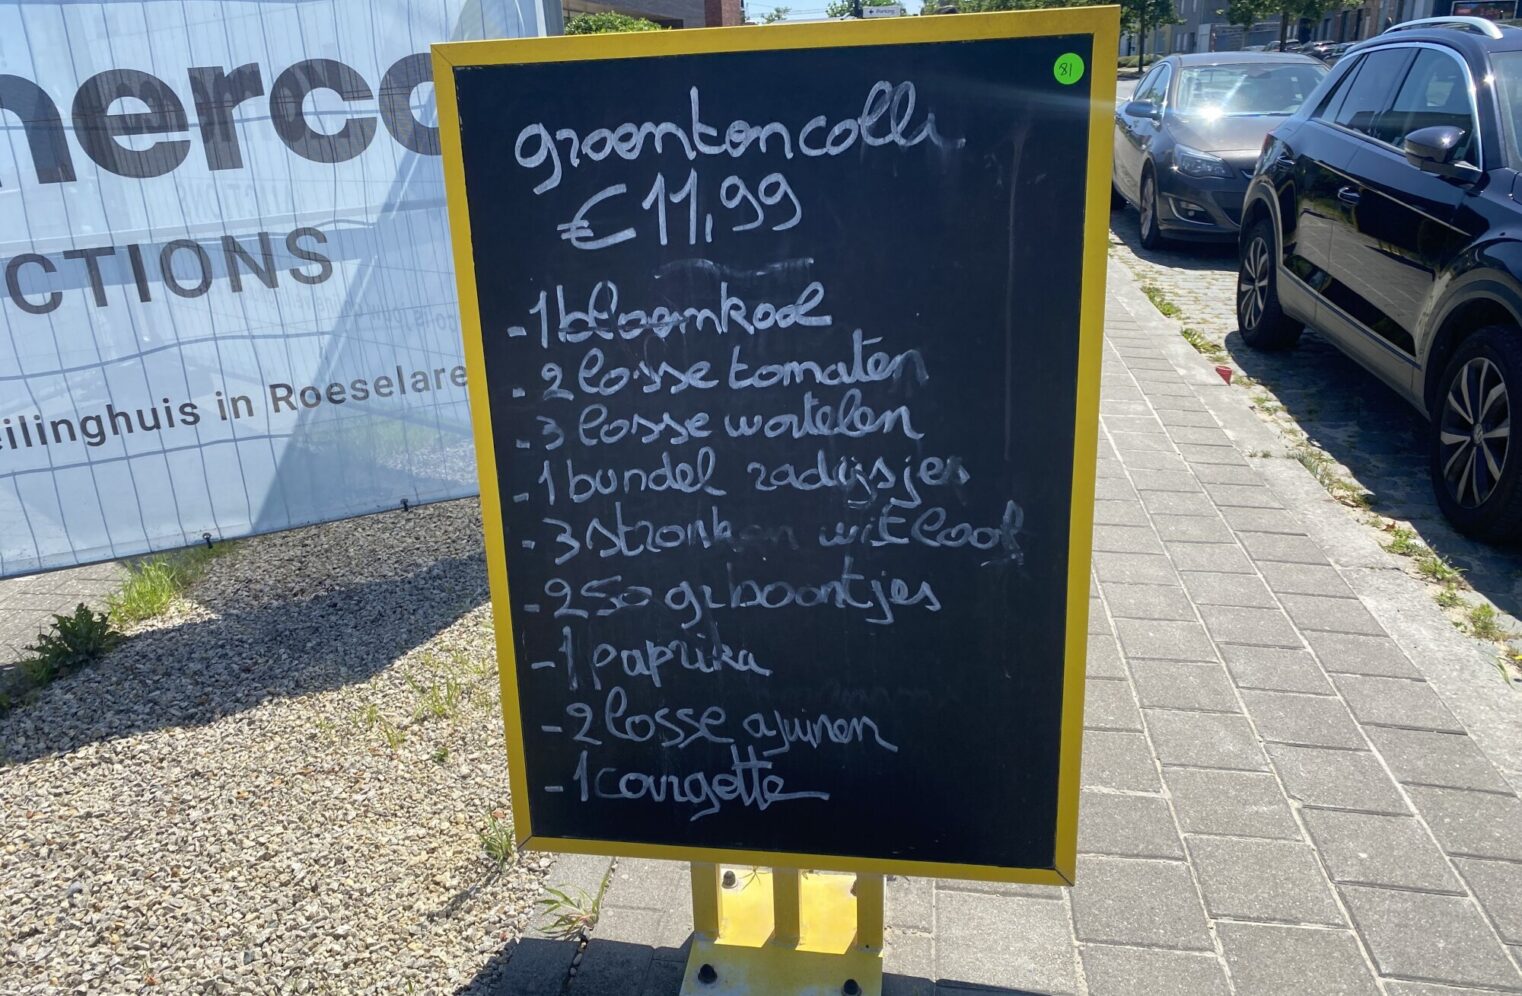 nerco
CTIONS
eilinghuis in Roeselare
Parking
81
groentencolli
€11,99
- 1 bloemkool
- 2 losse tomaten
- 3 losse wortelen
- 1 bundel radijsjes
- 3 stronken witloof
- 250 gr boontjes
- 1 paprika
- 2 losse ajuinen
- 1 courgette